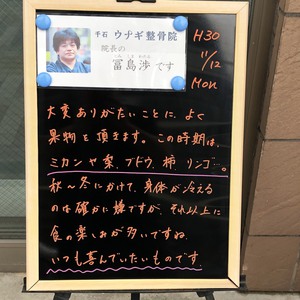 千石 ウナギ整骨院
院長の
冨島渉です
H30
11/12
Mon
大変ありがたいことに、よく
果物を頂きます。この時期は、
ミカンや梨、ブドウ、柿、リンゴ…。
秋〜冬にかけて、身体が冷える
のは確かに嫌ですが、それ以上に
食の楽しみが多いですね
いつも喜んでいたいものです